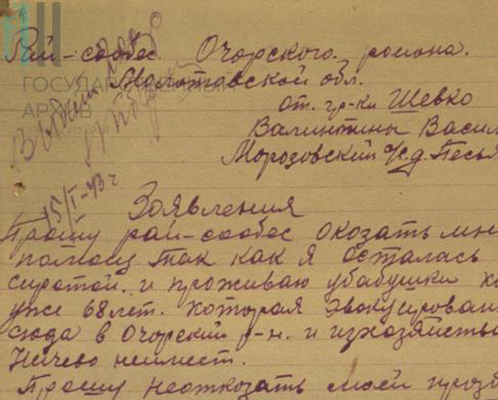 Рай-собес Очорского района.
Молотовской обл.
от гр-ки Шевко
Валинтины Васил
Морозовский с/с д. Песья
ГОСУДАР
АРХИВ
15/I-43 г
Заявления
Прошу рай-собес окозать мне
помощ так как я осталась
сиротой. и проживаю убабушки ко
уже 68 лет. которая эвокуирован
сюда в Очорский р-н. и изхозяйства
Ничево неимеет.
Прошу неотказать моей прозьб